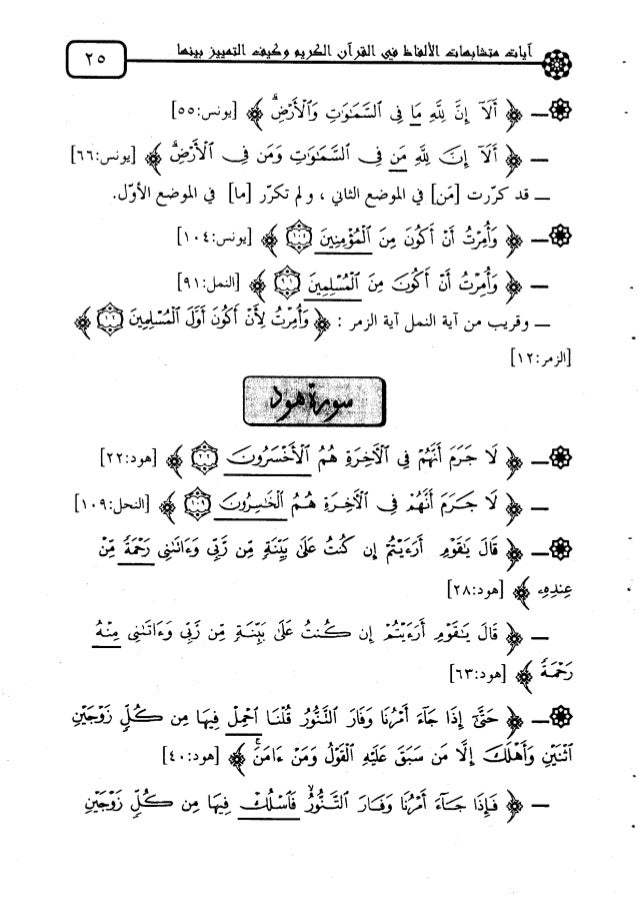 آيات متشابهات الألفاظ في القرآن الكريم وكيف التمييز بينها
٢٥
ـ ﴿ أَلَآ إِنَّ لِلَّهِ مَا فِي السَّمَاوَاتِ وَالْأَرْضِ ﴾ [يونس:٥٥]
ـ ﴿ أَلَآ إِنَّ لِلَّهِ مَن فِي السَّمَاوَاتِ وَمَن فِي الْأَرْضِ ﴾ [يونس:٦٦]
ـ قد كرّرت [مَن] في الموضع الثاني ، ولم تكرّر [ما] في الموضع الأوّل.
ـ ﴿ وَأُمِرْتُ أَنْ أَكُونَ مِنَ الْمُؤْمِنِينَ ١٠٤ ﴾ [يونس:١٠٤]
ـ ﴿ وَأُمِرْتُ أَنْ أَكُونَ مِنَ الْمُسْلِمِينَ ٩١ ﴾ [النمل:٩١]
ـ وقريب من آية النمل آية الزمر : ﴿ وَأُمِرْتُ لِأَنْ أَكُونَ أَوَّلَ الْمُسْلِمِينَ ١٢ ﴾
[الزمر:١٢]
سورة هود
ـ ﴿ لَا جَرَمَ أَنَّهُمْ فِي الْآخِرَةِ هُمُ الْأَخْسَرُونَ ٢٢ ﴾ [هود:٢٢]
ـ ﴿ لَا جَرَمَ أَنَّهُمْ فِي الْآخِرَةِ هُمُ الْخَاسِرُونَ ١٠٩ ﴾ [النحل:١٠٩]
ـ ﴿ قَالَ يَٰقَوْمِ أَرَءَيْتُمْ إِن كُنتُ عَلَىٰ بَيِّنَةٍ مِّن رَّبِّي وَءَاتَىٰنِي رَحْمَةً مِّنْ
عِندِهِۦ ﴾ [هود:٢٨]
ـ ﴿ قَالَ يَٰقَوْمِ أَرَءَيْتُمْ إِن كُنتُ عَلَىٰ بَيِّنَةٍ مِّن رَّبِّي وَءَاتَىٰنِي مِنْهُ
رَحْمَةً ﴾ [هود:٦٣]
ـ ﴿ حَتَّىٰٓ إِذَا جَآءَ أَمْرُنَا وَفَارَ التَّنُّورُ قُلْنَا احْمِلْ فِيهَا مِن كُلٍّ زَوْجَيْنِ
اثْنَيْنِ وَأَهْلَكَ إِلَّا مَن سَبَقَ عَلَيْهِ الْقَوْلُ وَمَنْ ءَامَنَ ﴾ [هود:٤٠]
ـ ﴿ فَإِذَا جَآءَ أَمْرُنَا وَفَارَ التَّنُّورُ فَاسْلُكْ فِيهَا مِن كُلٍّ زَوْجَيْنِ